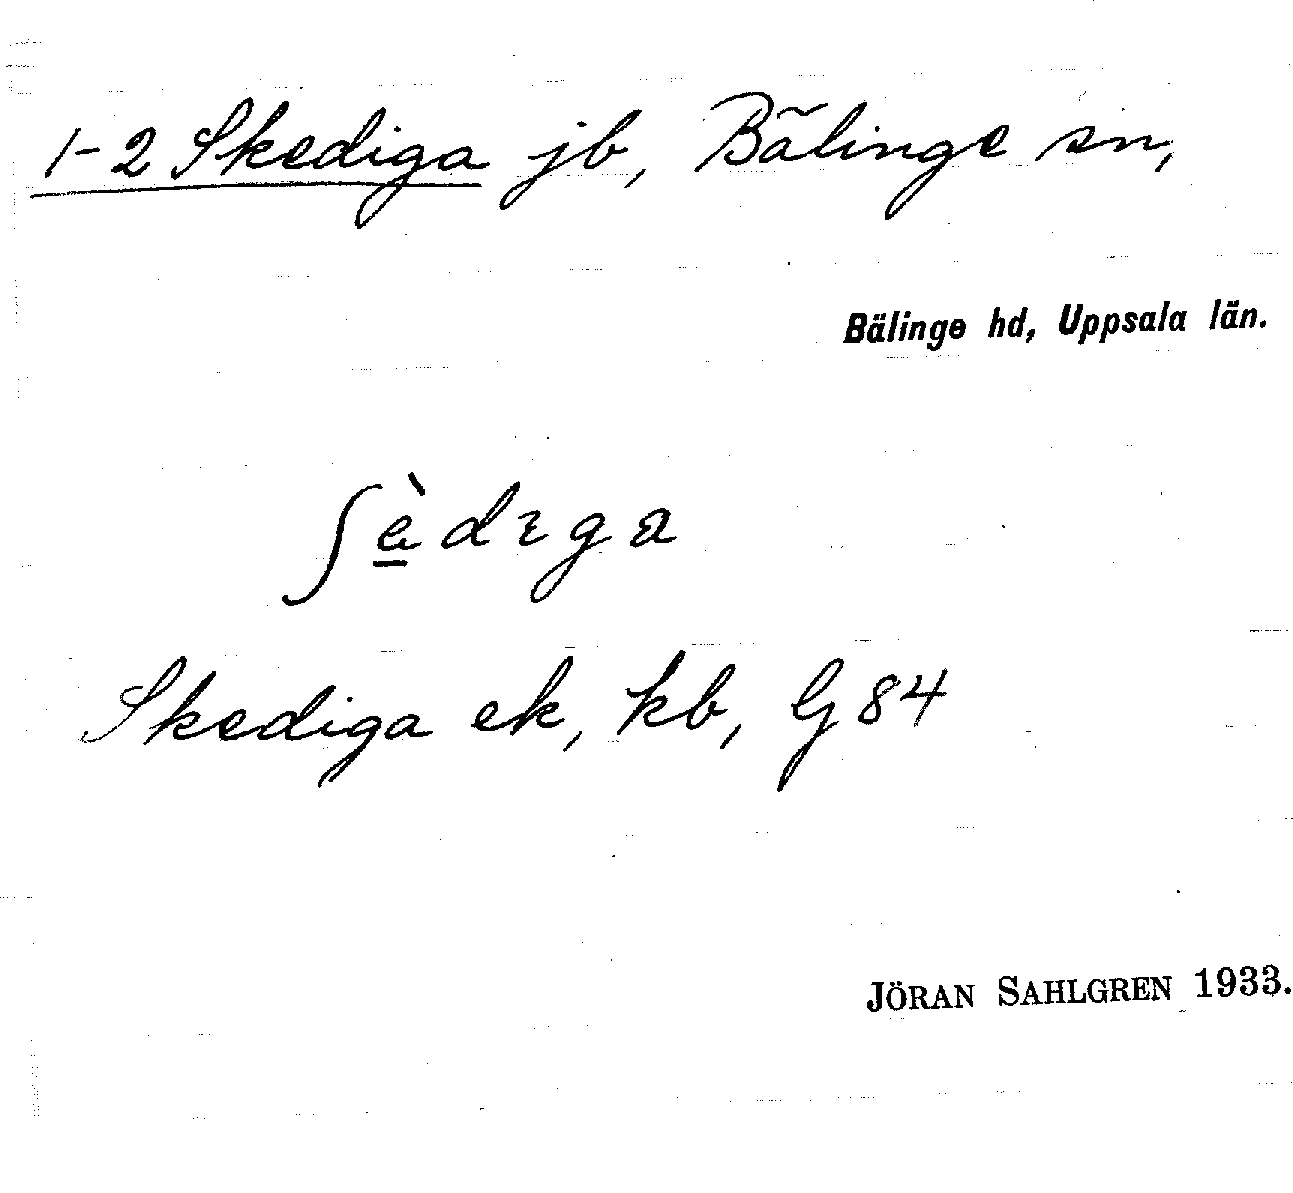 1-2 Skediga jb, Bälinge sn,
Bälinge hd, Uppsala län.
ʃè̱dɩga
Skediga ek, kb, G 84
JÖRAN SAHLGREN 1933.